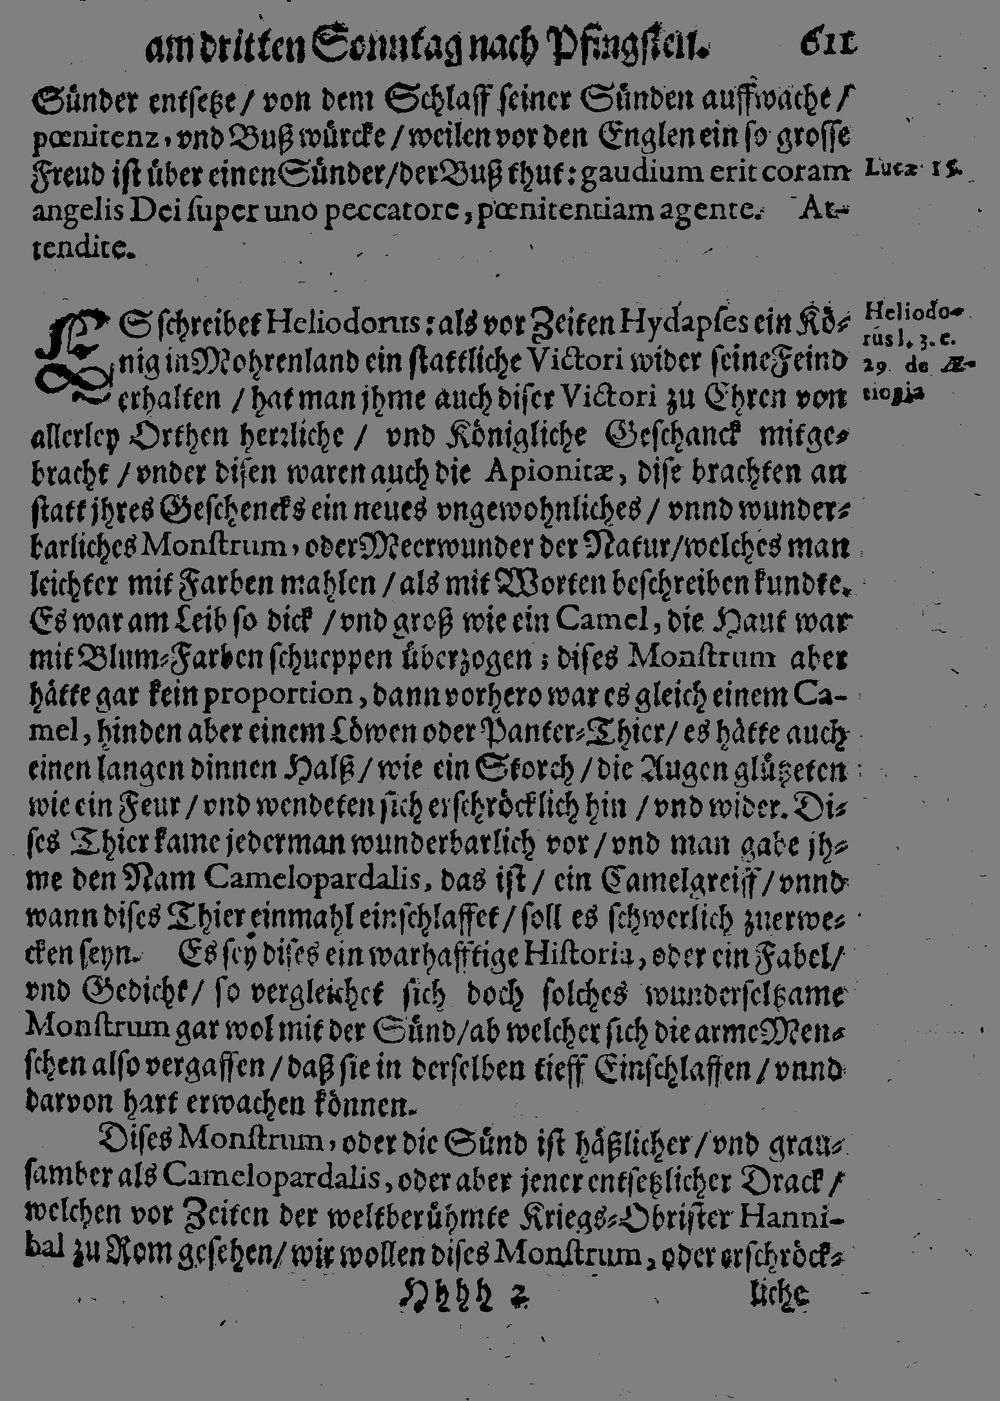 am dritten Sonntag nach Pfingsten. 611
Sünder entsetze / von dem Schlaff seiner Sünden auffwache /
pœnitenz, vnd Buß würcke / weilen vor den Englen ein so grosse
Freud ist über einen Sünder / der Buß thut: gaudium erit coram
Lucæ 15.
angelis Dei super uno peccatore, pœnitentiam agente. At-
tendite.
ES schreibet Heliodorus: als vor Zeiten Hydapses ein Kö-
nig in Mohrenland ein stattliche Victori wider seine Feind
erhalten / hat man jhme auch diser Victori zu Ehren von
Heliodo-
rus l. 3. c.
29. de Æ-
tiopia
allerley Orthen herrliche / vnd Königliche Geschanck mitge-
bracht / vnder disen waren auch die Apionitæ, dise brachten an
statt jhres Geschencks ein neues vngewohnliches / vnnd wunder-
barliches Monstrum, oder Meerwunder der Natur / welches man
leichter mit Farben mahlen / als mit Worten beschreiben kundte.
Es war am Leib so dick / vnd groß wie ein Camel, die Haut war
mit Blum-Farben schueppen überzogen; dises Monstrum aber
hätte gar kein proportion, dann vorhero war es gleich einem Ca-
mel, hinden aber einem Löwen oder Panter-Thier / es hätte auch
einen langen dinnen Halß / wie ein Storch / die Augen glützeten
wie ein Feur / vnd wendeten sich erschröcklich hin / vnd wider. Di-
ses Thier kame jederman wunderbarlich vor / vnd man gabe jh-
me den Nam Camelopardalis, das ist / ein Camelgreiff / vnnd
wann dises Thier einmahl einschlaffet / soll es schwerlich zuerwe-
cken seyn. Es sey dises ein warhafftige Historia, oder ein Fabel /
vnd Gedicht / so vergleichet sich doch solches wunderseltzame
Monstrum gar wol mit der Sünd / ab welcher sich die arme Men-
schen also vergaffen / daß sie in derselben tieff Einschlaffen / vnnd
darvon hart erwachen können.
Dises Monstrum, oder die Sünd ist häßlicher / vnd grau-
samber als Camelopardalis, oder aber jener entsetzlicher Drack /
welchen vor Zeiten der weltberühmte Kriegs-Obrister Hanni-
bal zu Rom gesehen / wir wollen dises Monstrum, oder erschröck-
Hhhh 2 liche